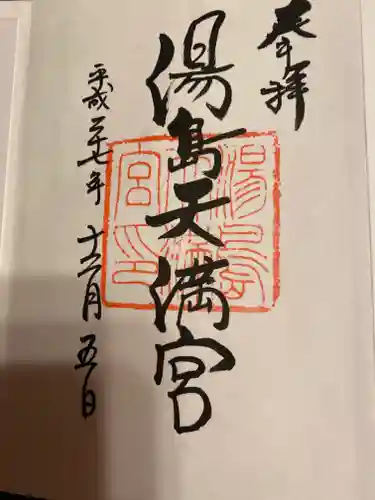 奉拝
湯島天満宮
平成二十七年 十二月 五日
湯島
天満
宮印